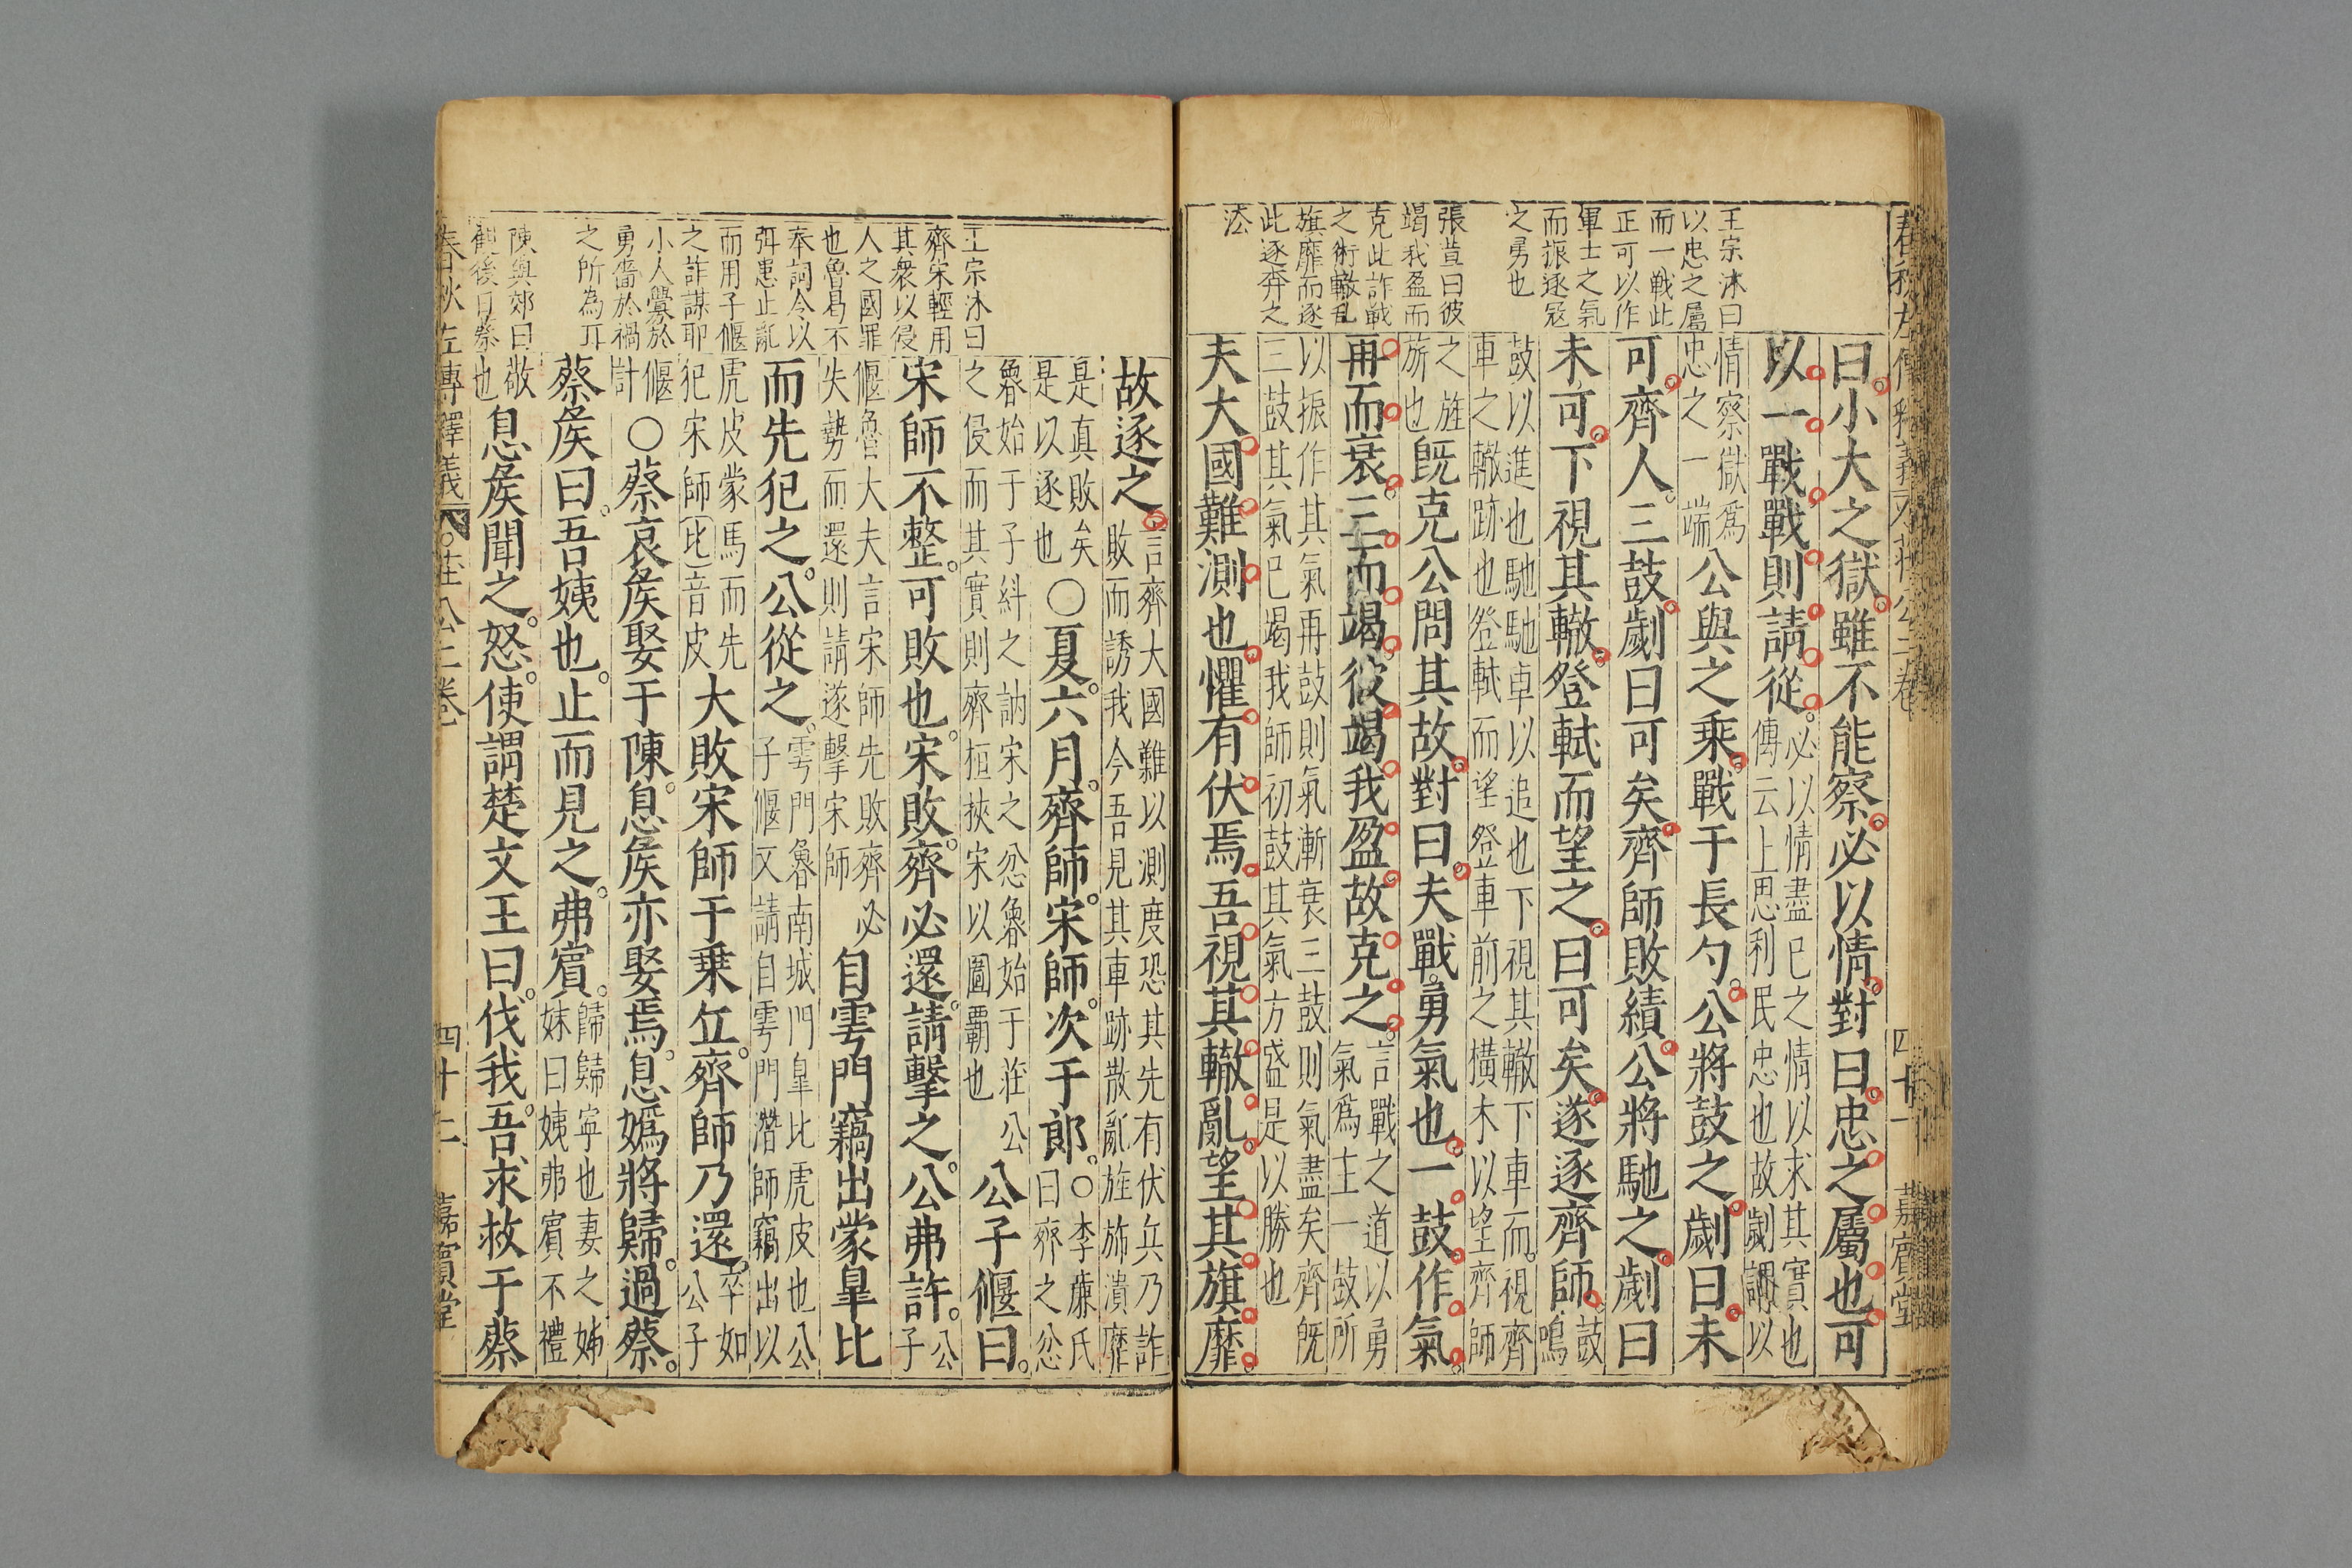 王宗沐曰
以忠之屬
而一戰此
正可以作
軍士之氣
而振逐寇
之勇也
張萱曰彼
竭我盈而
克此詐戰
之術轍亂
旗靡而逐
此逐奔之
法
曰小大之獄雖不能察必以情對曰忠之屬也可
以一戰戰則請從
必以情盡己之情以求其實也
傳云上思利民忠也故劌謂以
情察獄爲
忠之一端
公與之乘戰于長勺公將鼓之劌曰未
可齊人三鼓劌曰可矣齊師敗績公將馳之劌曰
未可下視其轍登軾而望之曰可矣遂逐齊師
鼓
鳴
鼓以進也馳馳卓以追也下視其轍下車而視齊
車之轍跡也登軾而望登車前之橫木以望齊師
之旌
旂也
既克公問其故對曰夫戰勇氣也一鼓作氣
再而衰三而竭彼竭我盈故克之
言戰之道以勇
氣爲主一鼓所
以振作其氣再鼓則氣漸衰三鼓則氣盡矣齊既
三鼓其氣已竭我師初鼓其氣方盛是以勝也
夫大國難測也懼有伏焉吾視其轍亂望其旗靡
四十一 嘉賓堂
王宗沐曰
齊宋輕用
其衆以侵
人之國罪
也魯曷不
奉詞令以
弭患止亂
而用子偃
之詐謀耶
小人釁於
勇嗇於禍
之所為耳
陳與郊曰
觀後日蔡
故逐之
言齊大國難以測度恐其先有伏兵乃詐
敗而誘我今吾見其車跡散亂旌旆潰靡
是真敗矣
是以逐也
〇夏六月齊師宋師次于郎
〇李廉氏
曰齊之忿
魯始于子糾之訥宋之忿魯始于莊公
之侵而其實則齊桓挾宋以圖霸也
公子偃曰
宋師不整可敗也宋敗齊必還請擊之公弗許
公
子
偃魯大夫言宋師先敗齊必
失勢而還則請遂擊宋師
自雩門竊出蒙皐比
而先犯之公從之
雩門魯南城門皐比虎皮也公
子偃又請自雩門潛師竊出以
虎皮蒙馬而先
犯宋師比音皮
大敗宋師于乗丘齊師乃還
卒如
公子
偃
計
〇蔡哀侯娶于陳息侯亦娶焉息嬀將歸過蔡
蔡侯曰吾姨也止而見之弗賓
歸歸寧也妻之姊
妹曰姨弗賓不禮
敬
也
息侯聞之怒使謂楚文王曰伐我吾求救于蔡
春秋左傳釋義 莊公二卷 四十二 嘉賓堂